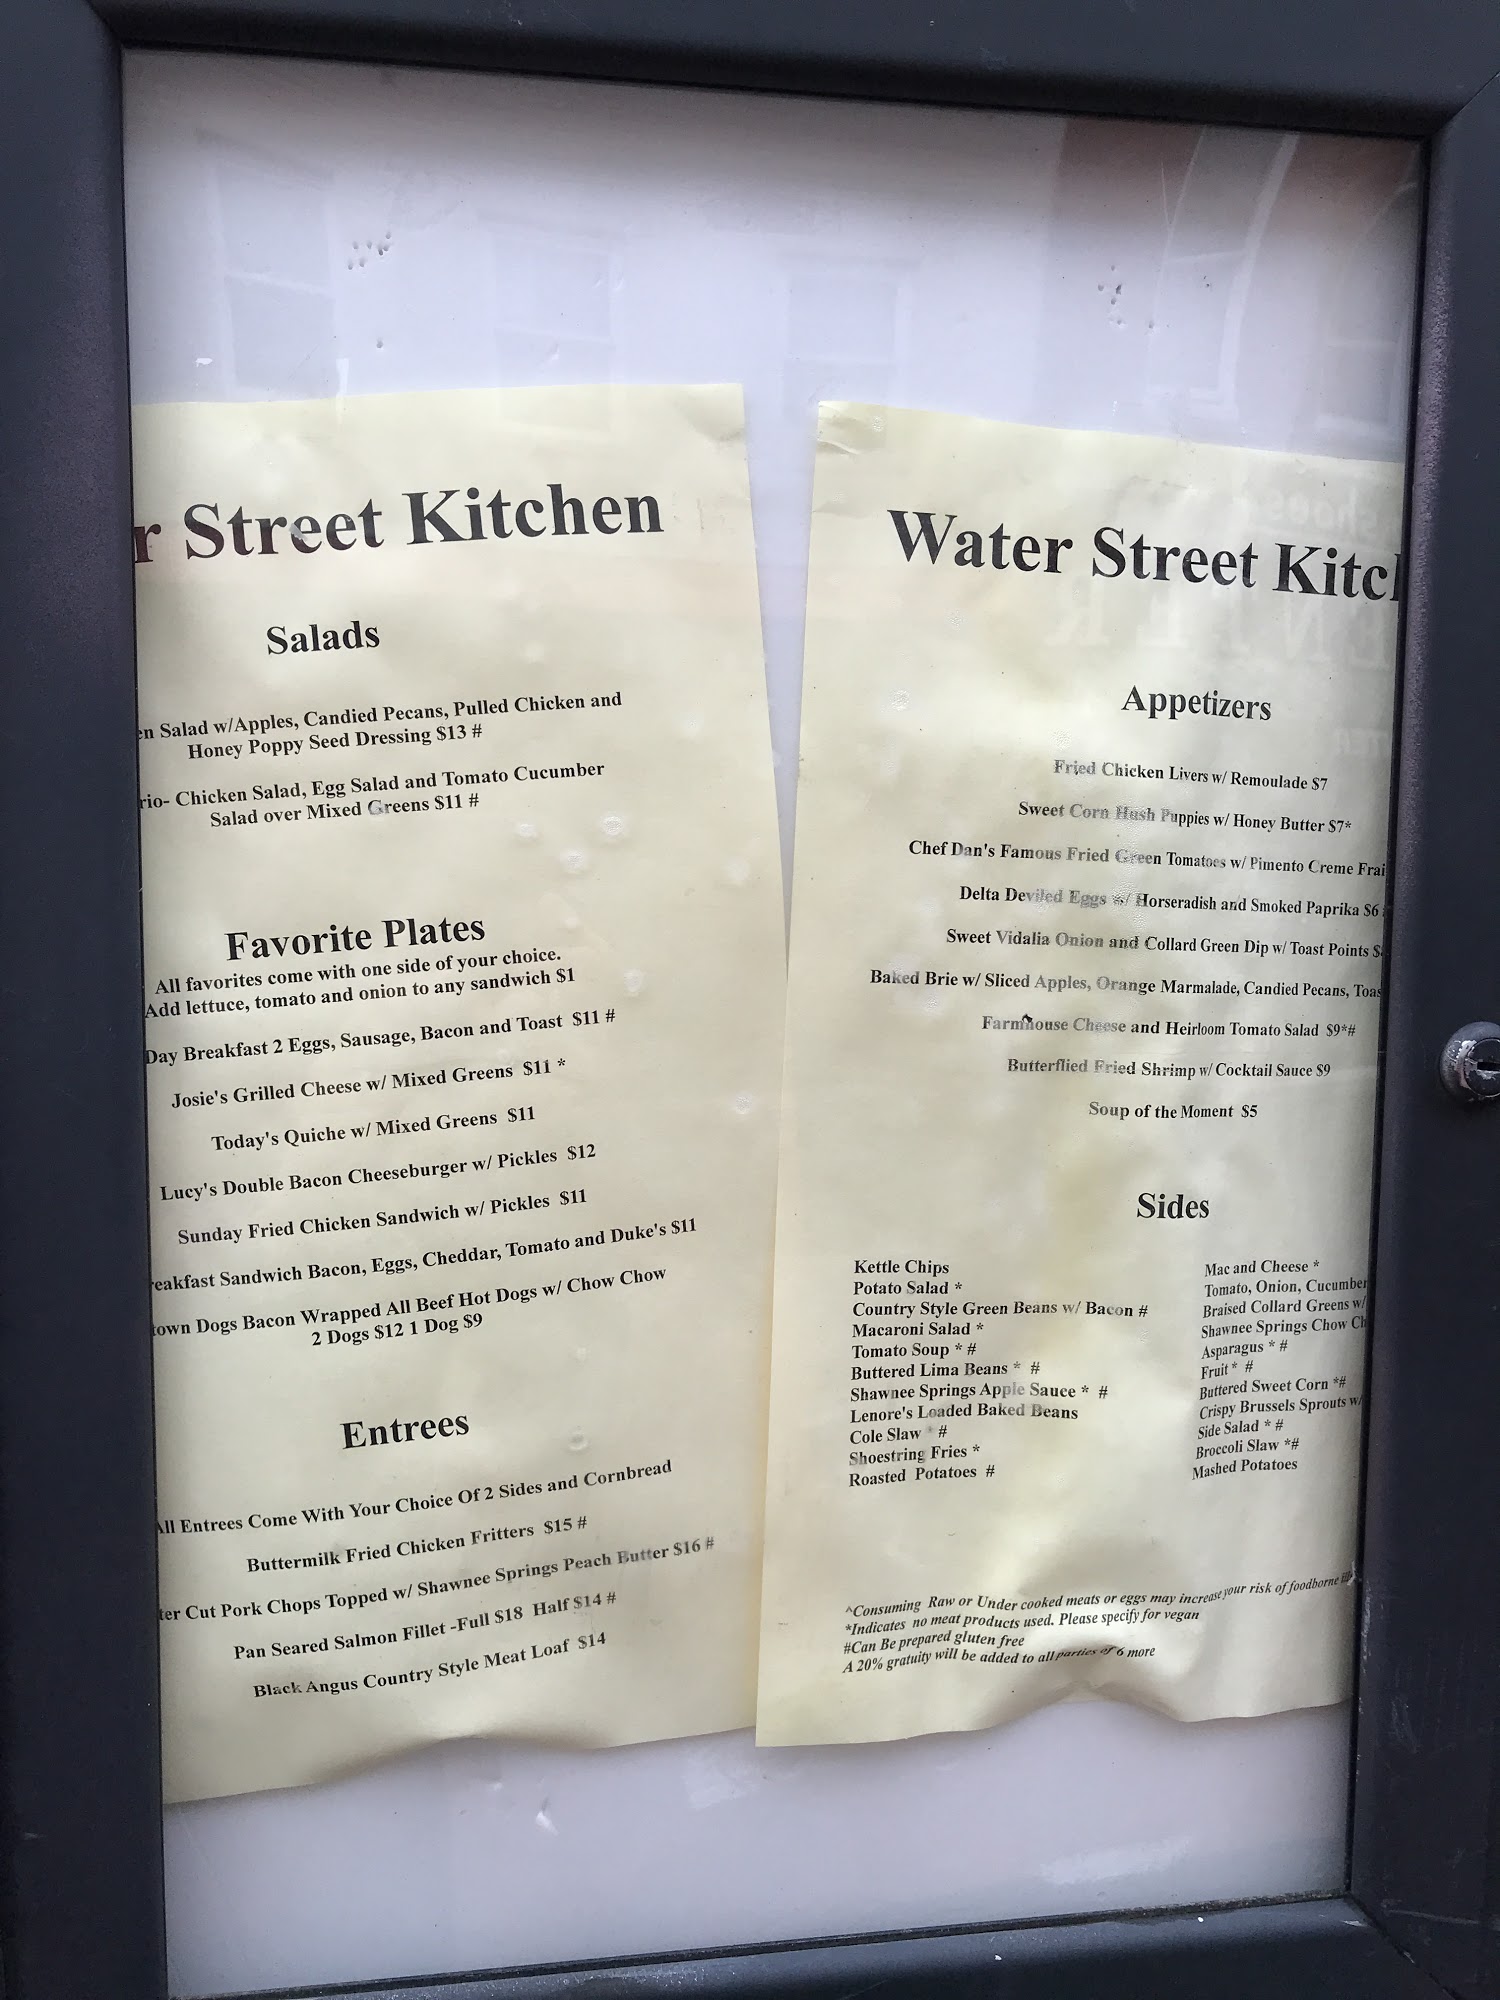 Street Kitchen
Salads
Salad w/Apples, Candied Pecans, Pulled Chicken and
Honey Poppy Seed Dressing $13 #
Chicken Salad, Egg Salad and Tomato Cucumber
Salad over Mixed Greens $11 #
Favorite Plates
All favorites come with one side of your choice.
Add lettuce, tomato and onion to any sandwich $1
Day Breakfast 2 Eggs, Sausage, Bacon and Toast $11 #
Josie's Grilled Cheese w/ Mixed Greens $11 *
Today's Quiche w/ Mixed Greens $11
Lucy's Double Bacon Cheeseburger w/ Pickles $12
Sunday Fried Chicken Sandwich w/ Pickles $11
eakfast Sandwich Bacon, Eggs, Cheddar, Tomato and Duke's $11
town Dogs Bacon Wrapped All Beef Hot Dogs w/ Chow Chow
2 Dogs $12 1 Dog $9
Entrees
All Entrees Come With Your Choice Of 2 Sides and Cornbread
Buttermilk Fried Chicken Fritters $15 #
ter Cut Pork Chops Topped w/ Shawnee Springs Peach Butter $16 #
Pan Seared Salmon Fillet -Full $18 Half $14 #
Black Angus Country Style Meat Loaf $14
Water Street Kitc
Appetizers
Fried Chicken Livers w/ Remoulade $7
Sweet Corn Hush Puppies w/ Honey Butter $7*
Chef Dan's Famous Fried Green Tomatoes w/ Pimento Creme Frai
Delta Deviled Eggs w/ Horseradish and Smoked Paprika $6
Sweet Vidalia Onion and Collard Green Dip w/ Toast Points $
Baked Brie w/ Sliced Apples, Orange Marmalade, Candied Pecans, Toas
Farmhouse Cheese and Heirloom Tomato Salad $9*#
Butterflied Fried Shrimp w/ Cocktail Sauce $9
Soup of the Moment $5
Sides
Kettle Chips
Potato Salad *
Country Style Green Beans w/ Bacon #
Macaroni Salad *
Tomato Soup * #
Buttered Lima Beans * #
Shawnee Springs Apple Sauce * #
Lenore's Loaded Baked Beans
Cole Slaw * #
Shoestring Fries *
Roasted Potatoes #
Mac and Cheese *
Tomato, Onion, Cucumber
Braised Collard Greens w/
Shawnee Springs Chow Ch
Asparagus * #
Fruit * #
Buttered Sweet Corn *#
Crispy Brussels Sprouts w/
Side Salad * #
Broccoli Slaw *#
Mashed Potatoes
^Consuming Raw or Under cooked meats or eggs may increase your risk of foodborne
*Indicates no meat products used. Please specify for vegan
#Can Be prepared gluten free
A 20% gratuity will be added to all parties of 6 more